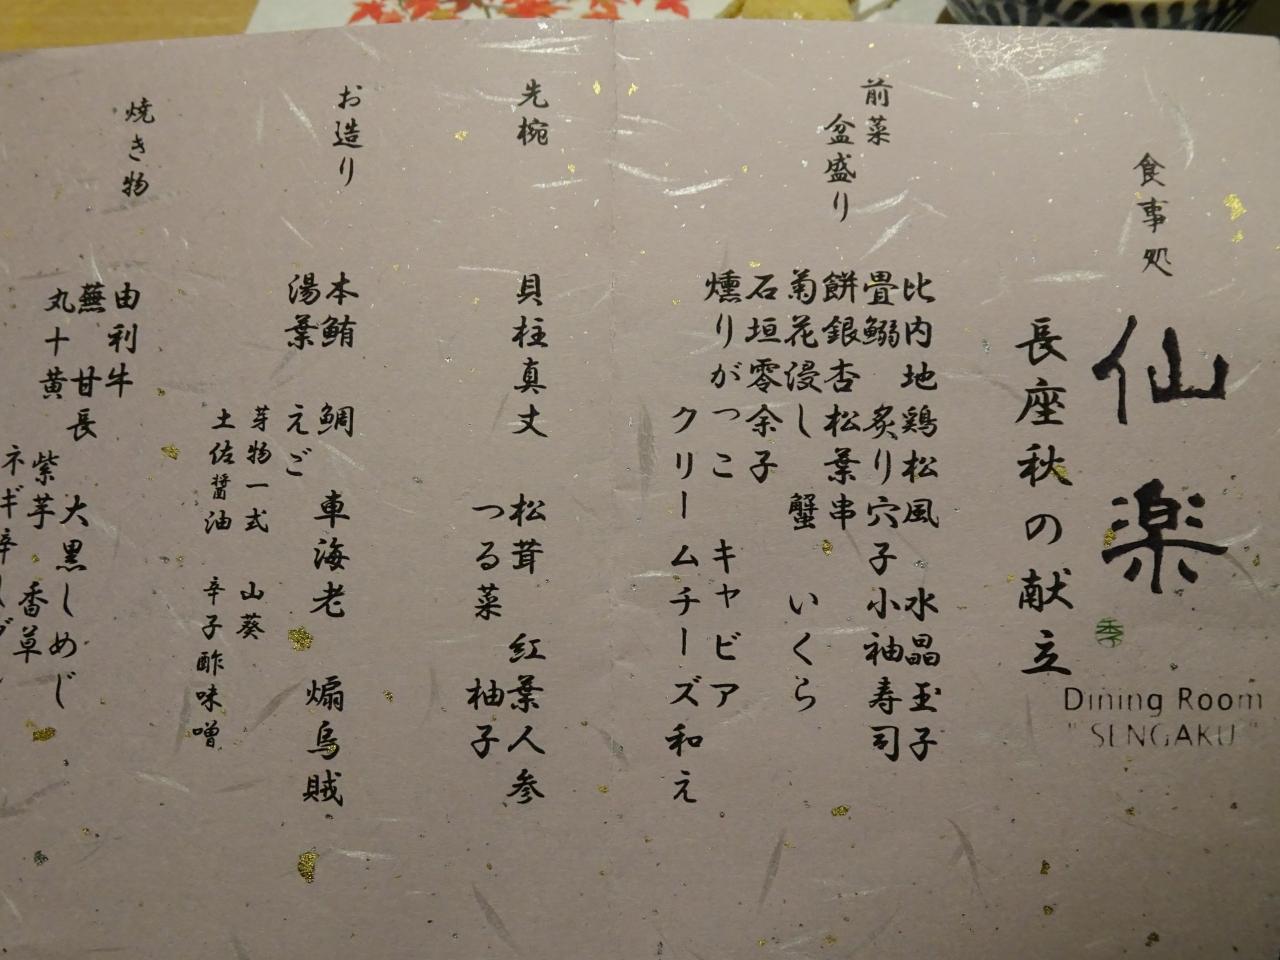 食事処
仙楽
季
Dining Room
"SENGAKU"
長座秋の献立
前菜
盆盛り
比内地鶏松風 水晶玉子
畳鰯 炙り穴子小袖寿司
餅銀杏松葉串
菊花浸し 蟹 いくら
石垣零余子
燻りがっこ キャビア
クリームチーズ和え
先椀
貝柱真丈 松茸 紅葉人参
つる菜 柚子
お造り
本鮪 鯛 車海老 煽烏賊
湯葉 えご
芽物一式 山葵
土佐醤油 辛子酢味噌
焼き物
由利牛
蕪 甘長 大黒しめじ
丸十黄 紫芋 香草
ネギ辛し